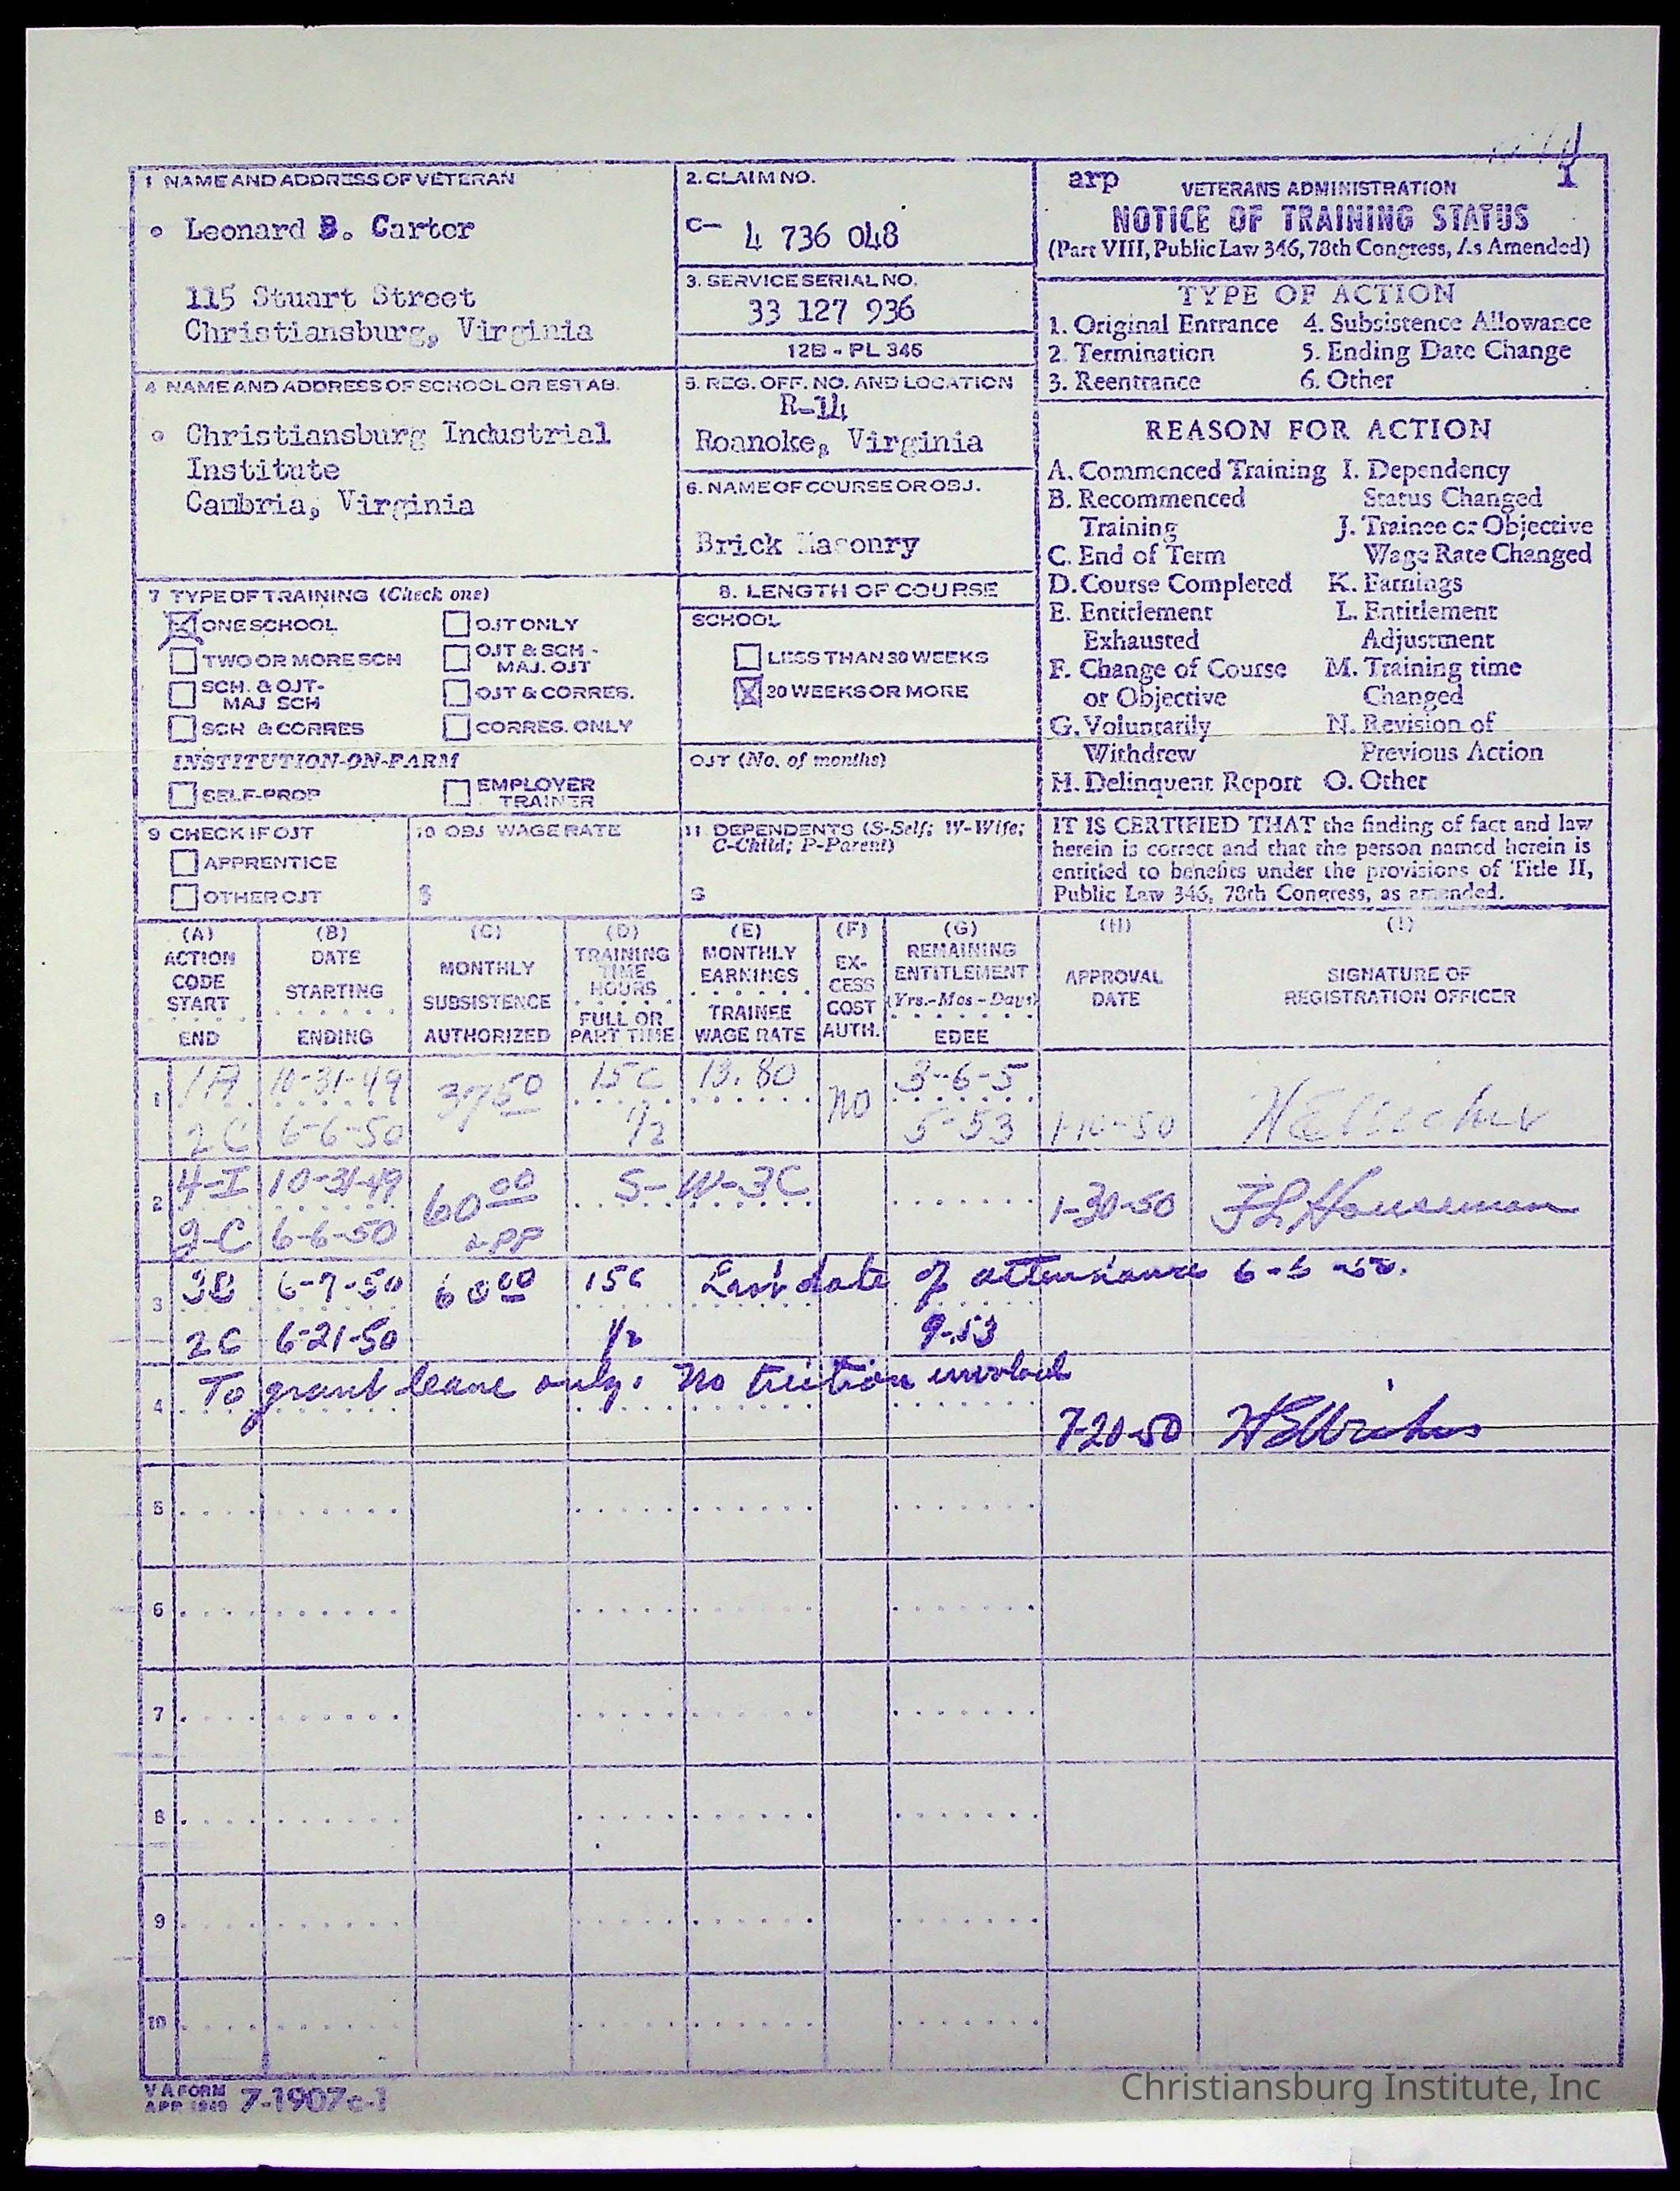 arp
1
1 NAME AND ADDRESS OF VETERAN
Leonard B. Carter
115 Stuart Street
Christiansburg, Virginia
2. CLAIM NO.
C- 4 736 048
3. SERVICE SERIAL NO.
33 127 936
12B - PL 346
VETERANS ADMINISTRATION
NOTICE OF TRAINING STATUS
(Part VIII, Public Law 346, 78th Congress, As Amended)
TYPE OF ACTION
1. Original Entrance 4. Subsistence Allowance
2. Termination 5. Ending Date Change
3. Reentrance 6. Other
4 NAME AND ADDRESS OF SCHOOL OR ESTAB.
Christiansburg Industrial
Institute
Cambria, Virginia
5. REG. OFF. NO. AND LOCATION
R-14
Roanoke, Virginia
6. NAME OF COURSE OR OBJ.
Brick Masonry
REASON FOR ACTION
A. Commenced Training I. Dependency
B. Recommenced Status Changed
Training J. Trainee or Objective
C. End of Term Wage Rate Changed
D. Course Completed K. Earnings
E. Entitlement L. Entitlement
Exhausted Adjustment
F. Change of Course M. Training time
or Objective Changed
G. Voluntarily N. Revision of
Withdrew Previous Action
H. Delinquent Report O. Other
7 TYPE OF TRAINING (Check one)
ONE SCHOOL OJT ONLY
TWO OR MORE SCH OJT & SCH -
MAJ. OJT
SCH. & OJT- OJT & CORRES.
MAJ SCH
SCH & CORRES CORRES. ONLY
INSTITUTION-ON-FARM
SELF-PROP EMPLOYER
TRAINER
8. LENGTH OF COURSE
SCHOOL
LESS THAN 30 WEEKS
30 WEEKS OR MORE
OJT (No. of months)
9 CHECK IF OJT
APPRENTICE
OTHER OJT
10 OBJ WAGE RATE
$
11. DEPENDENTS (S-Self; W-Wife;
C-Child; P-Parent)
S
IT IS CERTIFIED THAT the finding of fact and law
herein is correct and that the person named herein is
entitled to benefits under the provisions of Title II,
Public Law 346, 78th Congress, as amended.
(A) ACTION CODE START END
(B) DATE STARTING ENDING
(C) MONTHLY SUBSISTENCE AUTHORIZED
(D) TRAINING TIME HOURS FULL OR PART TIME
(E) MONTHLY EARNINGS TRAINEE WAGE RATE
(F) EX-CESS COST AUTH.
(G) REMAINING ENTITLEMENT (Yrs.-Mos-Days) EDEE
(H) APPROVAL DATE
(I) SIGNATURE OF REGISTRATION OFFICER
1 1A 10-31-49 37 50 15C 13.80 NO 3-6-5
2C 6-6-50 1/2 5-53 1-10-50
2 4-I 10-31-49 60 00 S-W-3C 1-30-50 FL Houseman
2-C 6-6-50 app
3 3B 6-7-50 60 00 15C Last date of attendance 6-5-50.
2C 6-21-50 1/2 9-53
4 To grant leave only. No tuition involved
7-20-50
5
6
7
8
9
10
VA FORM
APR 1949 7-1907c-1
Christiansburg Institute, Inc